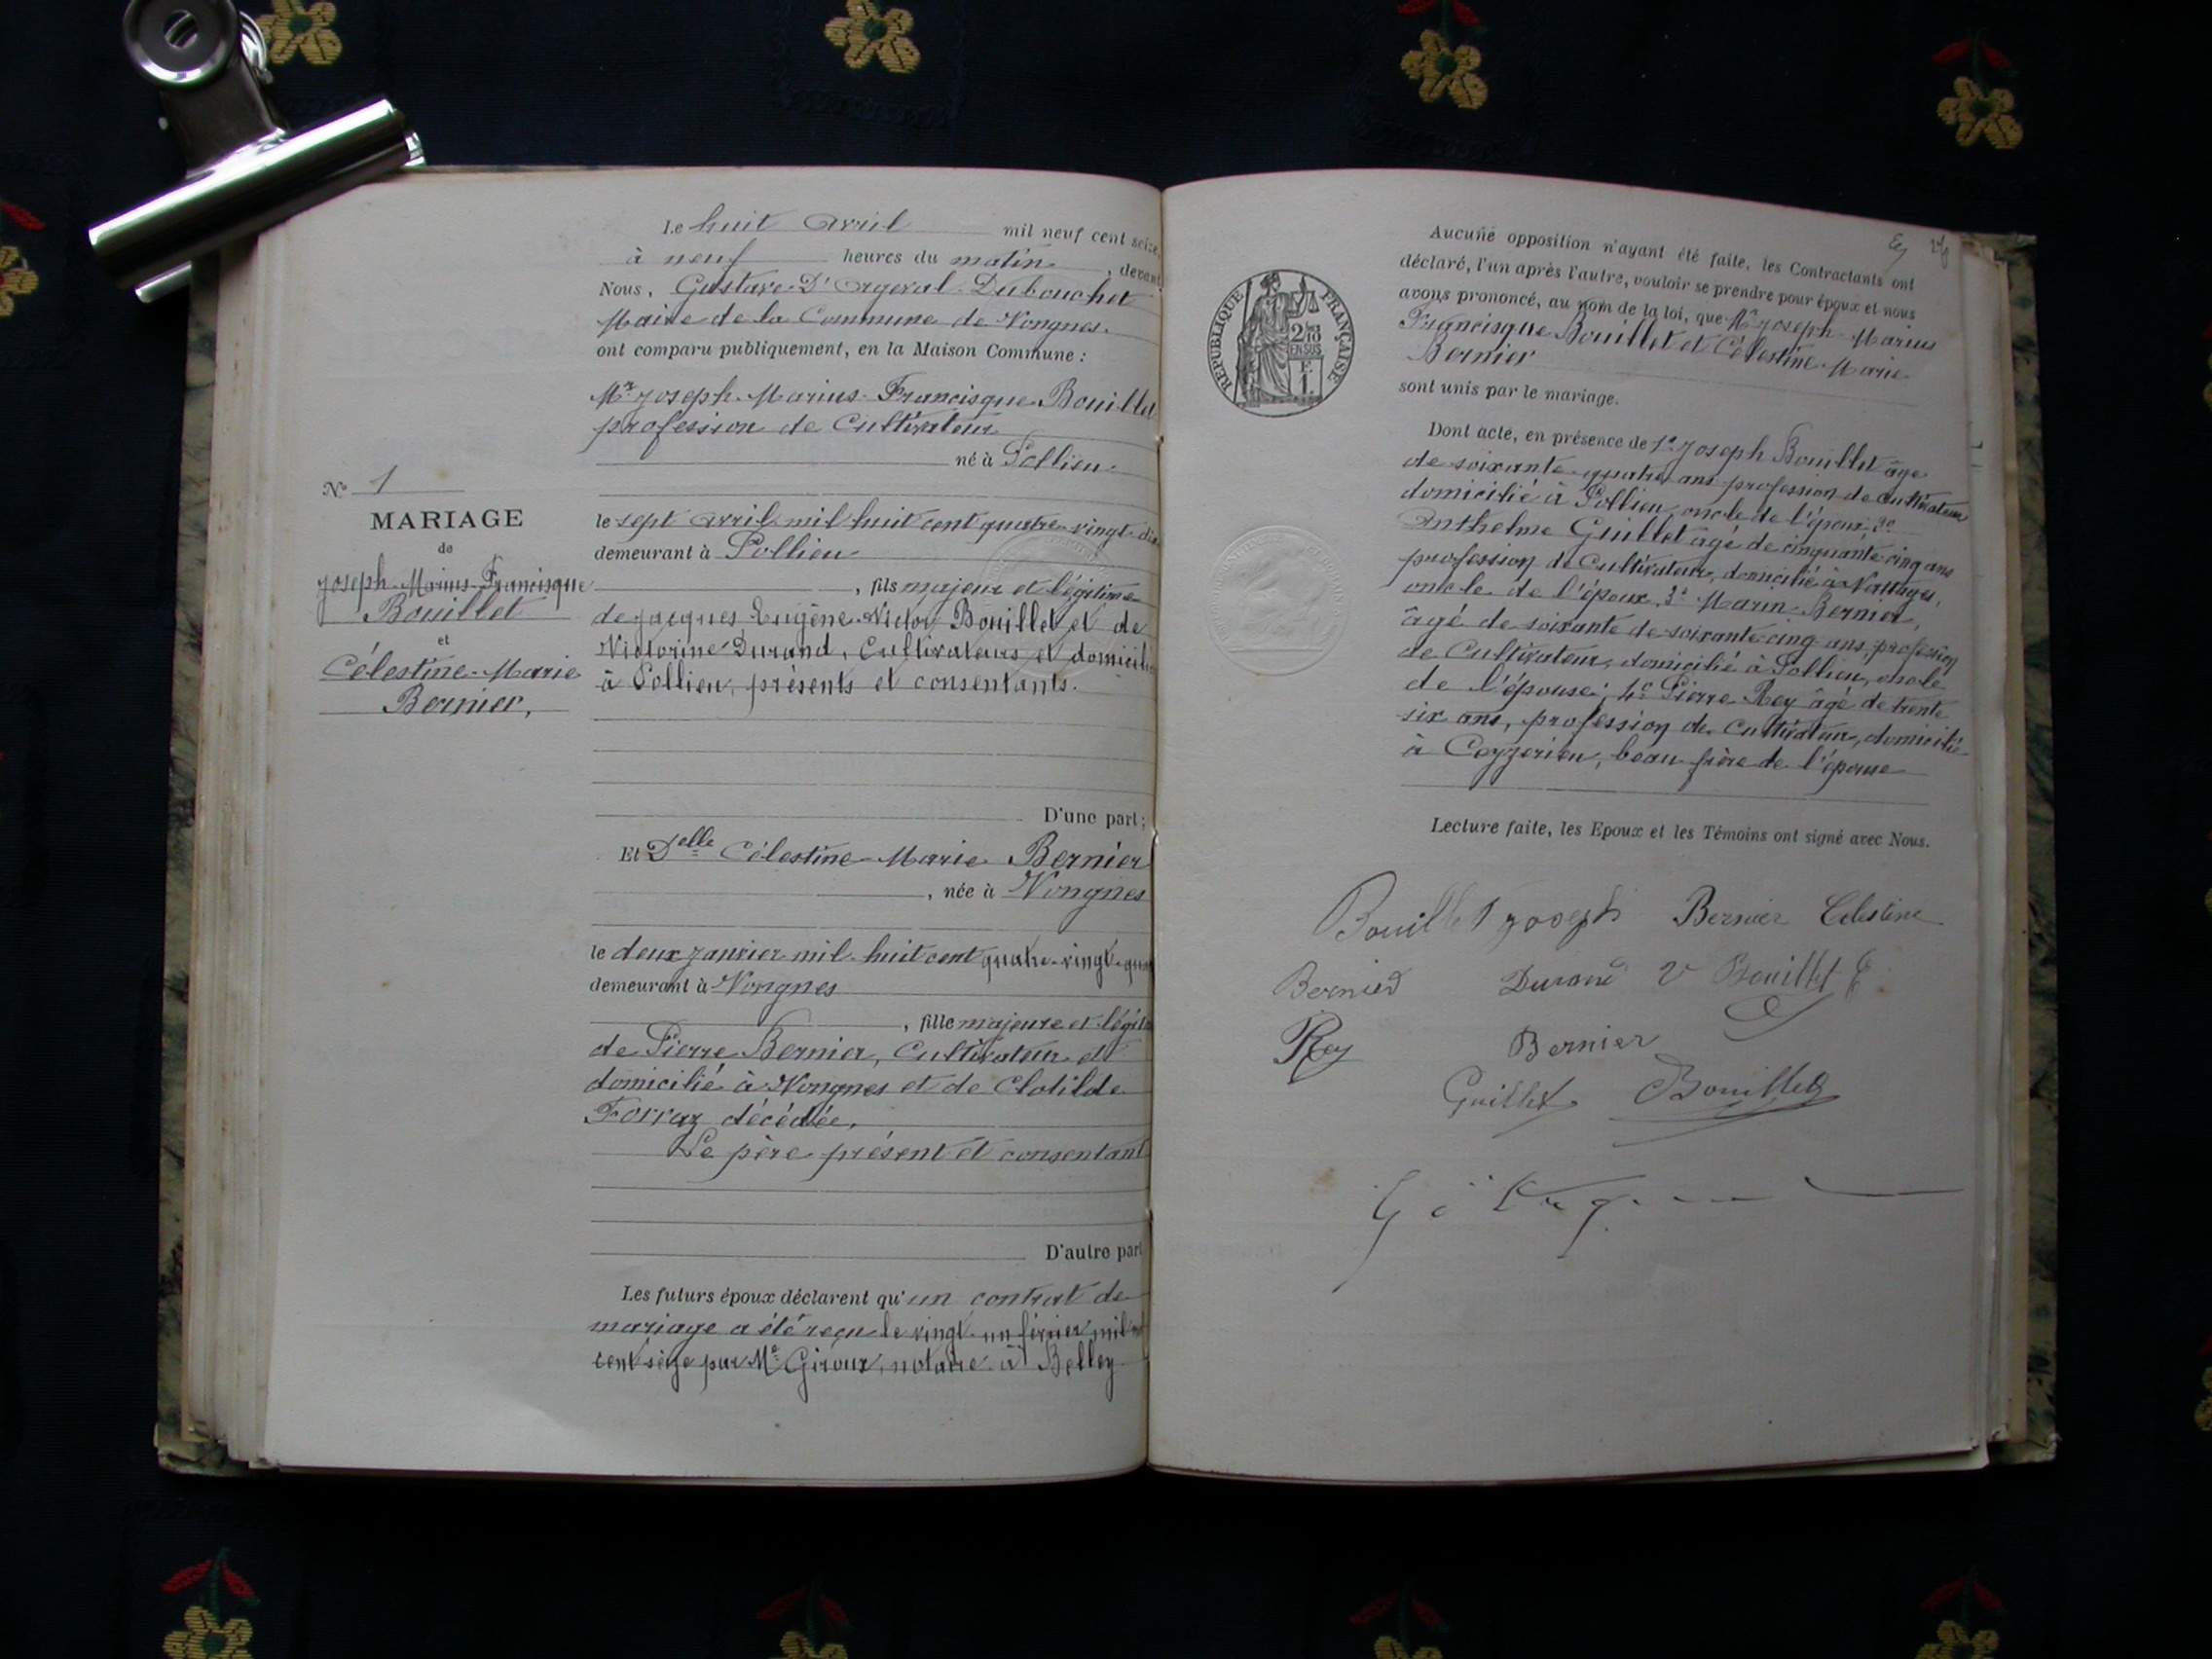 Le huit Avril mil neuf cent seize,
à neuf heures du matin, devant
Nous, Gustave D'Argeral Dubouchet
Maire de la Commune de Vongnes.
ont comparu publiquement, en la Maison Commune :
Mr Joseph-Marius-Francisque Bouillet
profession de Cultivateur
né à Pollieu.
N° 1
MARIAGE
de
Joseph-Marius-Francisque
Bouillet
et
Célestine-Marie
Bernier,
le sept Avril mil huit cent quatre-vingt-dix
demeurant à Pollieu
, fils majeur et légitime
de Jacques Eugène Victor Bouillet et de
Victorine Durand, Cultivateurs et domicili
à Pollieu, présents et consentants.
D'une part ;
Et Delle Célestine-Marie Bernier
, née à Vongnes
le deux Janvier mil huit cent quatre-vingt-qua
demeurant à Vongnes
, fille majeure et légit
de Pierre Bernier, Cultivateur et
domicilié à Vongnes et de Clotilde
Forraz décédée,
Le père présent et consentant
D'autre part
Les futurs époux déclarent qu'un contrat de
mariage a été reçu le vingt-un février mil
cent seize par Me Giroux, notaire à Belley
Aucune opposition n'ayant été faite, les Contractants ont
déclaré, l'un après l'autre, vouloir se prendre pour époux et nous
avons prononcé, au nom de la loi, que Mr Joseph-Marius
Francisque Bouillet et Célestine-Marie
Bernier
sont unis par le mariage.
REPUBLIQUE FRANÇAISE
2/10 EN SUS
F. 1.
Dont acte, en présence de 1° Joseph Bouillet âgé
de soixante-quatre ans profession de Cultivateur
domicilié à Pollieu, oncle de l'époux, 2°
Anthelme Guillet âgé de cinquante-cinq ans
profession de Cultivateur, domicilié à Nattages,
oncle de l'époux, 3° Marin Bernier,
âgé de soixante de soixante-cinq ans, profession
de Cultivateur, domicilié à Pollieu, oncle
de l'épouse ; 4° Pierre Rey âgé de trente
six ans, profession de Cultivateur, domicilié
à Ceyzerieu, beau frère de l'épouse
Lecture faite, les Epoux et les Témoins ont signé avec Nous.
Bouillet Joseph Bernier Célestine
Bernier Durand V Bouillet E
Rey Bernier
Guillet Bouillet